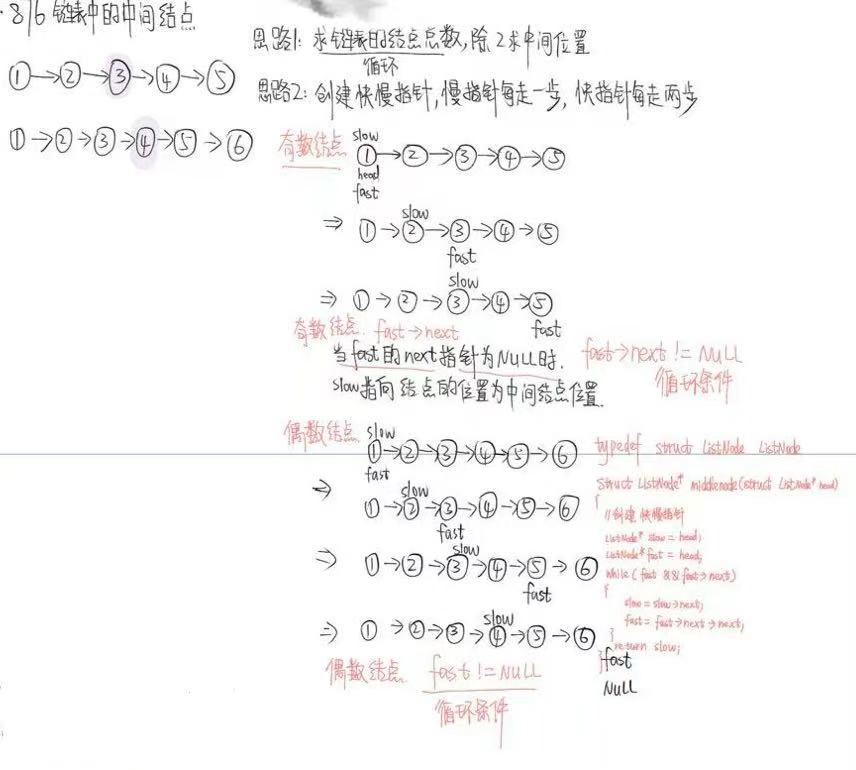 ·876 链表中的中间结点
①→②→③→④→⑤
①→②→③→④→⑤→⑥
思路1: 求链表的结点总数,除2求中间位置
循环
思路2: 创建快慢指针,慢指针每走一步, 快指针每走两步
奇数结点
slow
①→②→③→④→⑤
head
fast
slow
⇒ ①→②→③→④→⑤
fast
slow
⇒ ①→②→③→④→⑤
fast
奇数结点. fast→next
当fast的next指针为NULL时.
slow指向结点的位置为中间结点位置.
fast→next != NULL
循环条件
偶数结点
slow
①→②→③→④→⑤→⑥
fast
slow
⇒ ①→②→③→④→⑤→⑥
fast
slow
⇒ ①→②→③→④→⑤→⑥
fast
slow
⇒ ①→②→③→④→⑤→⑥
fast
NULL
偶数结点 fast != NULL
循环条件
typedef struct ListNode ListNode
struct ListNode* middlenode(struct ListNode* head)
{
//创建快慢指针
ListNode* slow = head;
ListNode* fast = head;
while( fast && fast→next)
{
slow = slow→next;
fast = fast→next→next;
}
return slow;
}